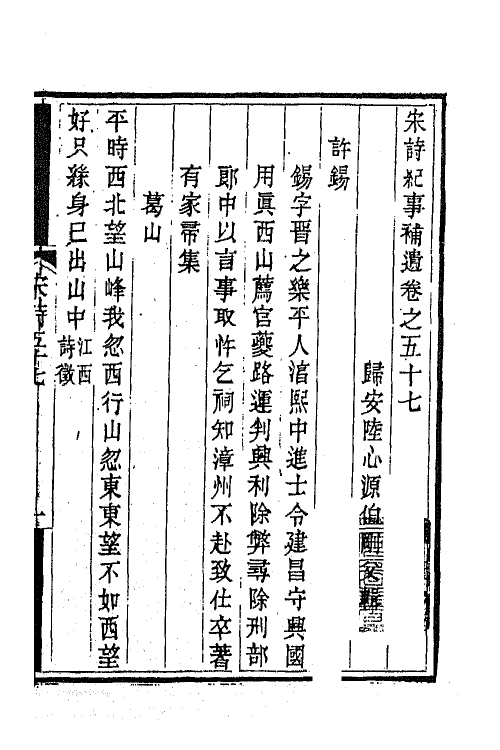 宋詩紀事補遺卷之五十七
歸安陸心源伯
許錫
錫字晋之樂平人湻熙中進士令建昌守興國
用眞西山薦官夔路運判興利除弊尋除刑部
郞中以言事取忤乞祠知漳州不赴致仕卒著
有家帚集
葛山
平時西北望山峰我忽西行山忽東東望不如西望
好只緣身已出山中江西詩徵